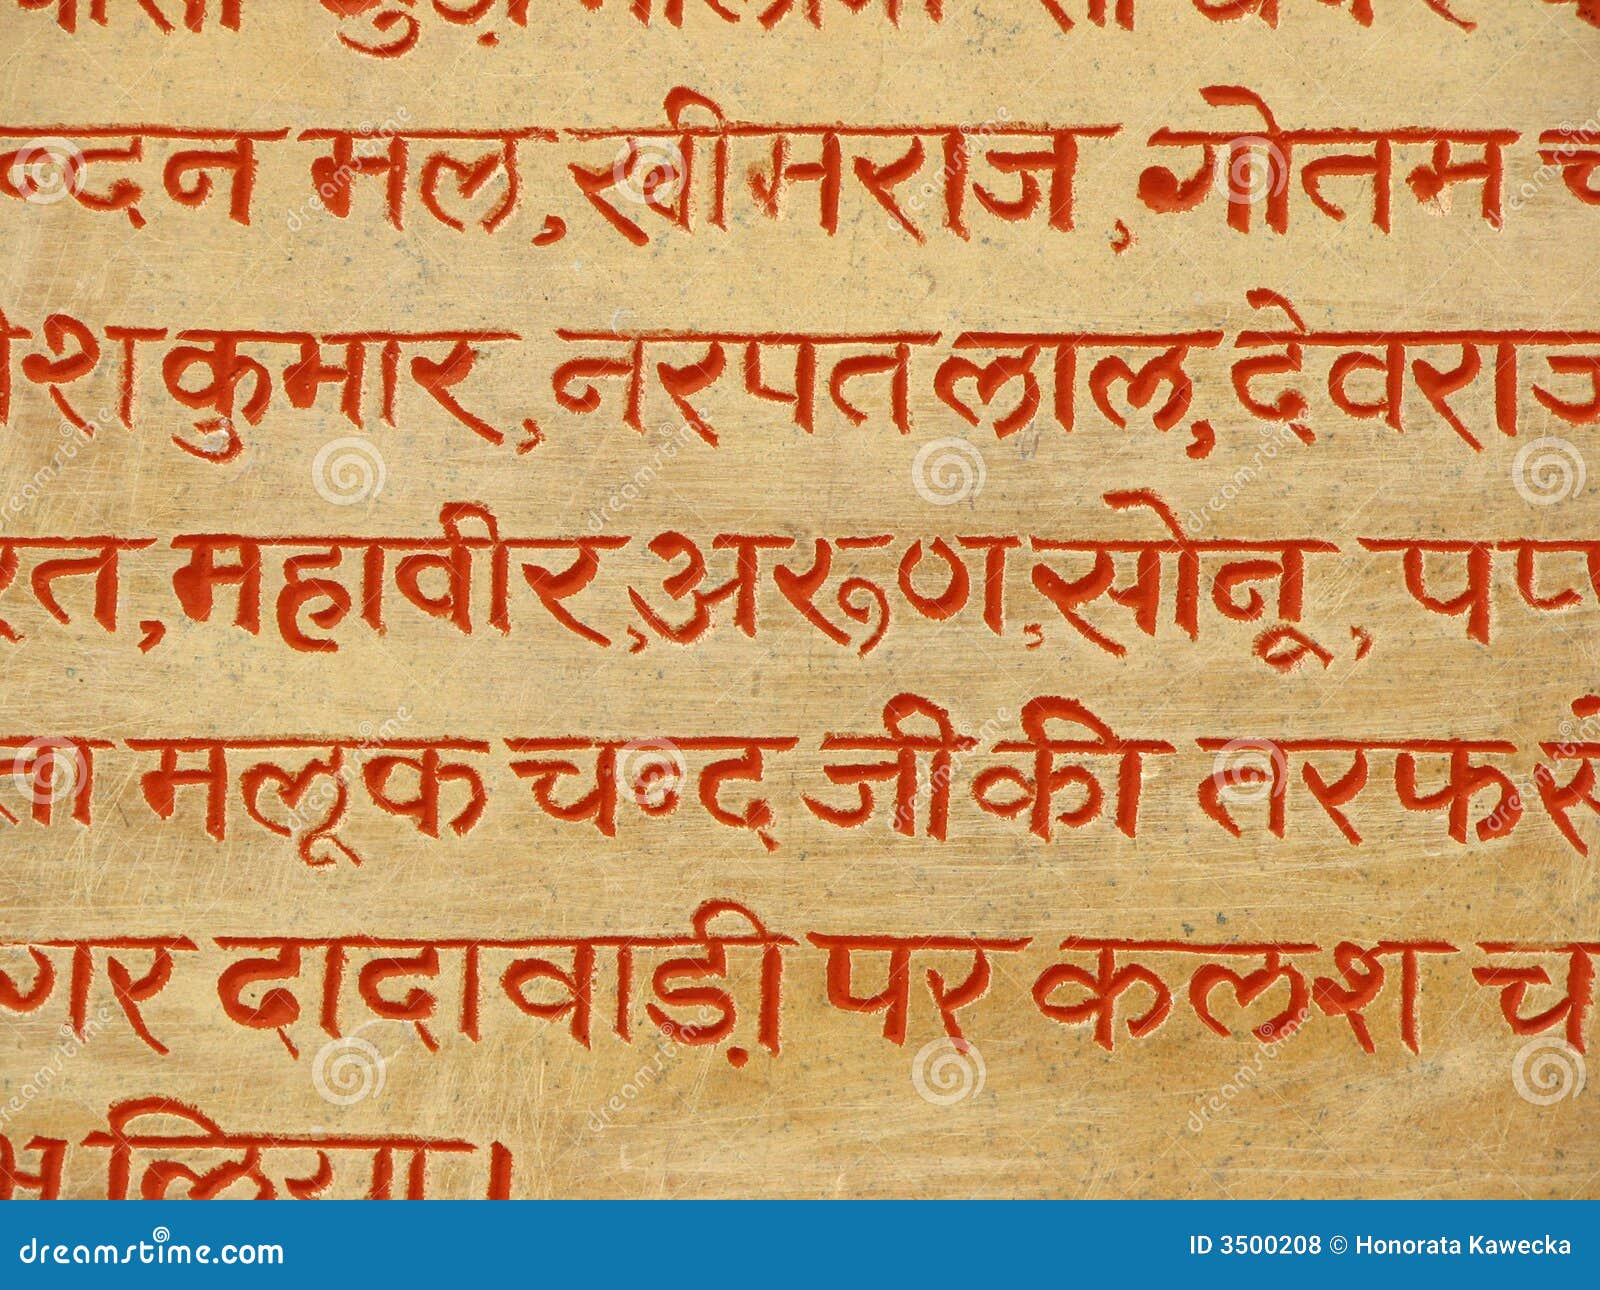 न्दन मल, खीमराज, गोतम च
ेश कुमार, नरपत लाल, देवराज
रत, महावीर, अरूण, सोनू, पप्प
ता मलूक चन्द जी की तरफ से
गर दादावाड़ी पर कलश च
लिया।
dreamstime.com
ID 3500208 © Honorata Kawecka